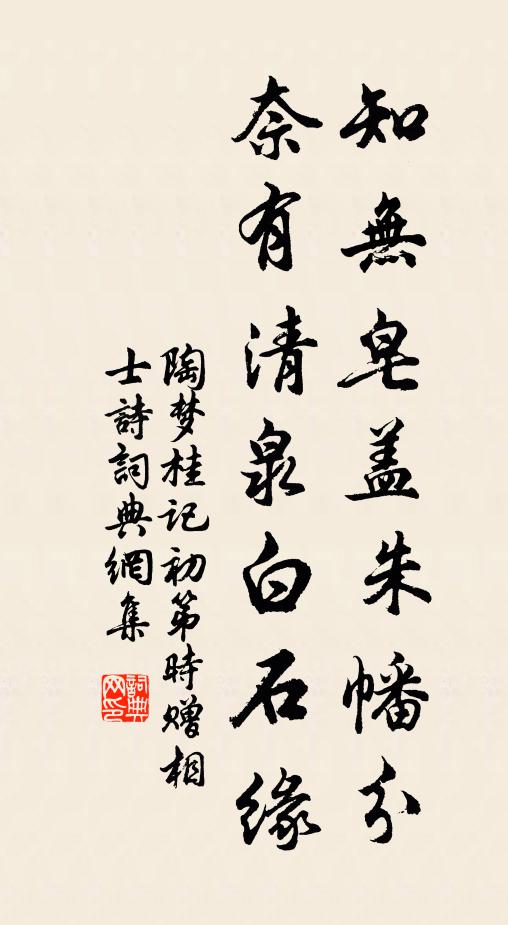 知無皂盖朱幡分
奈有清泉白石缘
陶梦桂记初第時赠相
士詩詞典網集
詞典网印